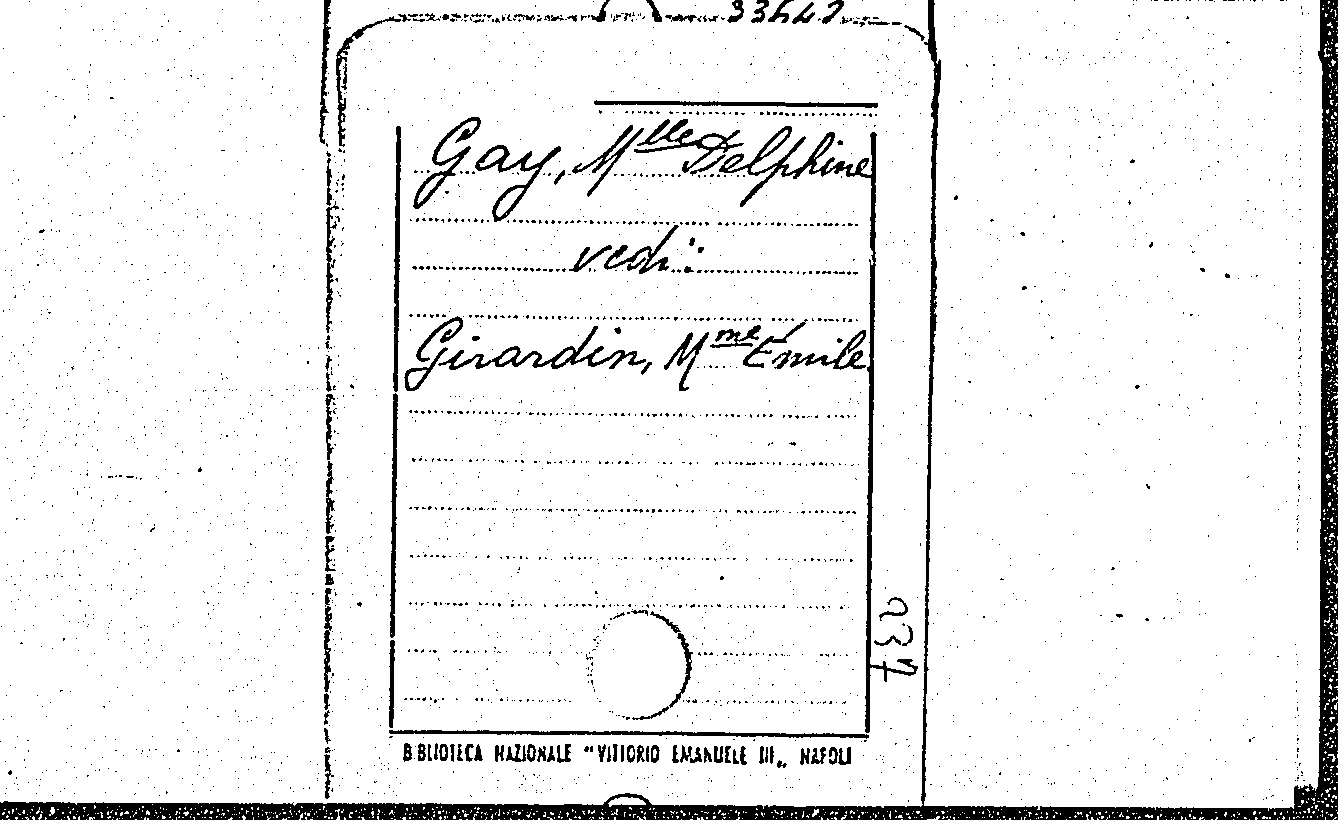 Gay, Mlle Delphine
vedi:
Girardin, Mme Émile
237
BIBLIOTECA NAZIONALE "VITTORIO EMANUELE III„ NAPOLI